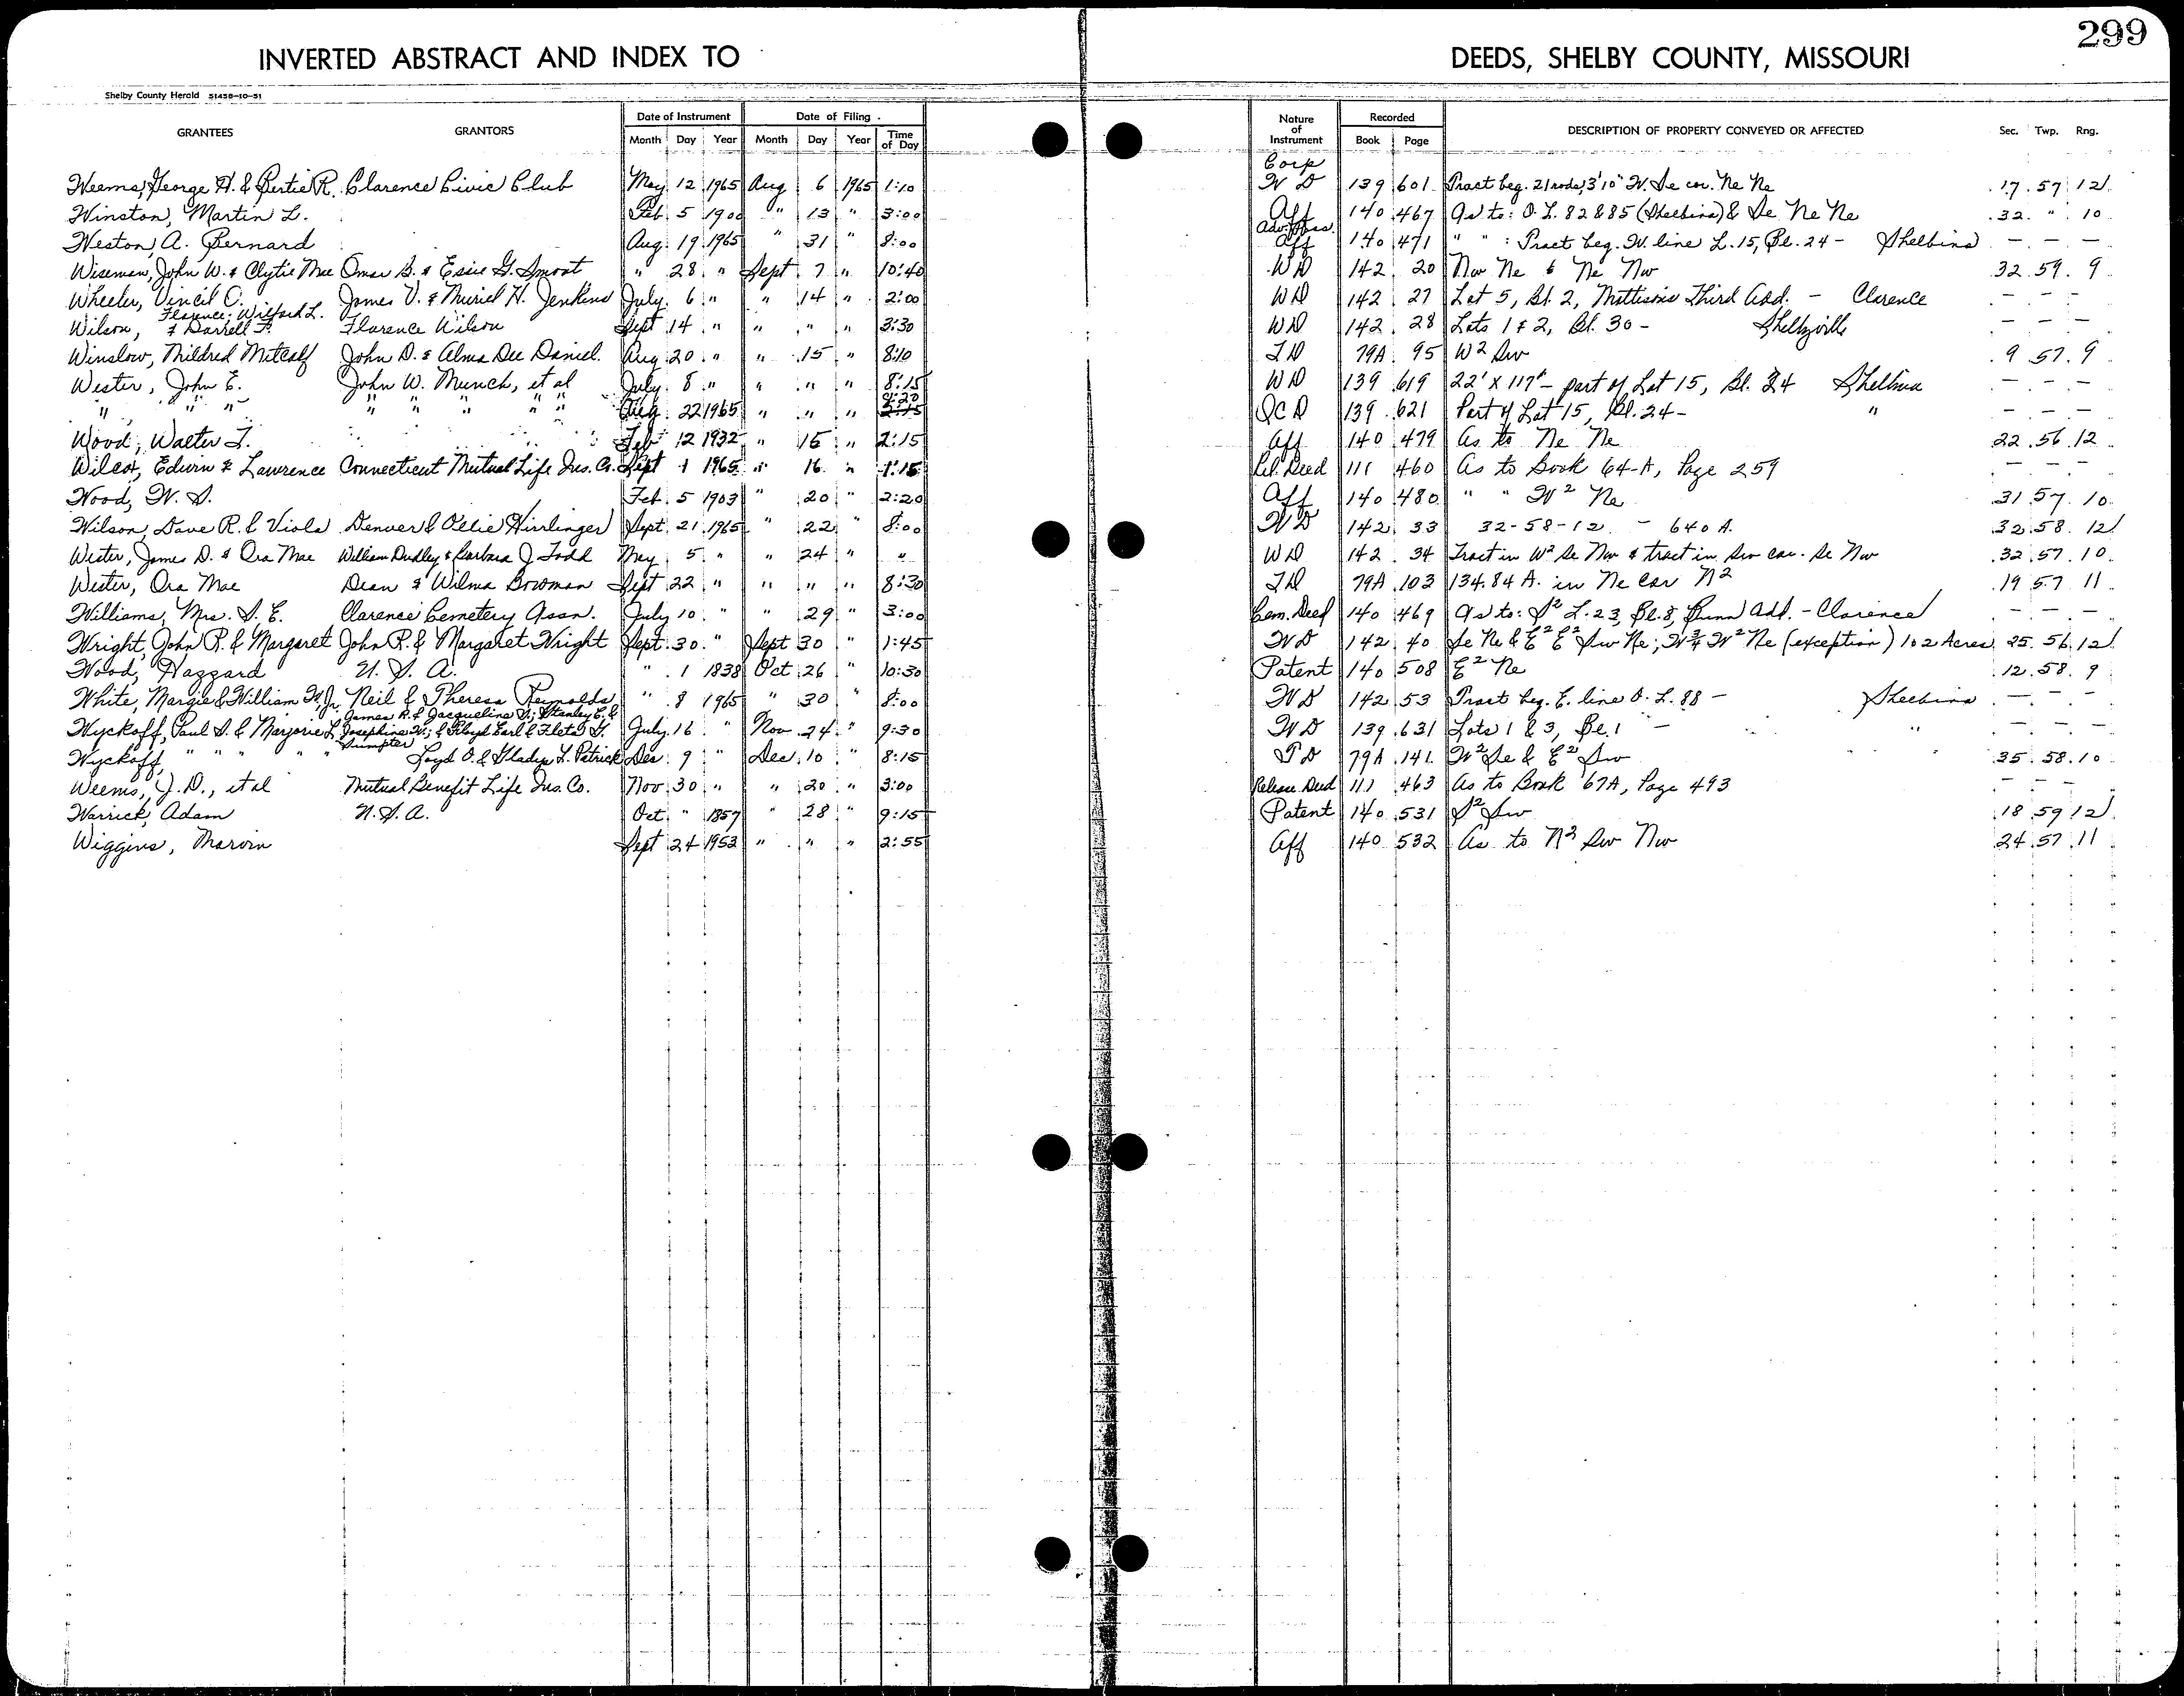 299
INVERTED ABSTRACT AND INDEX TO DEEDS, SHELBY COUNTY, MISSOURI
Shelby County Herald 51458-10-51
GRANTEES GRANTORS Date of Instrument Month Day Year Date of Filing Month Day Year Time of Day Nature of Instrument Recorded Book Page DESCRIPTION OF PROPERTY CONVEYED OR AFFECTED Sec. Twp. Rng.
Weems, George H. & Bertie R. Clarence Civic Club May 12 1965 Aug 6 1965 1:10 Corp W D 139 601 Tract beg. 21 rods, 3'10" W. Se cor. Ne Ne 17 57 12
Winston, Martin L. Feb 5 1900 " 13 " 3:00 Aff 140 467 As to: O.L. 82 & 85 (Shelbina) & Se Ne Ne 32 " 10
Weston, A. Bernard Aug. 19 1965 " 31 " 8:00 Adv. Poss. Aff 140 471 " " : Tract beg. W. line L. 15, Bl. 24 - Shelbina - - -
Wiseman, John W. & Clytie Mae Omar B. & Essie G. Smoot " 28 " Sept 7 " 10:40 WD 142 20 Nw Ne & Ne Nw 32 59 9
Wheeler, Vincil O. James V. & Muriel H. Jenkins July 6 " " 14 " 2:00 WD 142 27 Lot 5, Bl. 2, Mattisons Third Add. - Clarence - - -
Wilson, Florence; Wilford L. & Darrell F. Florence Wilson Sept 14 " " " " 3:30 WD 142 28 Lots 1 & 2, Bl. 30 - Shelbyville - - -
Winslow, Mildred Metcalf John D. & Alma Dee Daniel Aug 20 " " 15 " 8:10 TD 79A 95 W2 Sw 9 57 9
Wester, John E. John W. Munch, et al July 8 " " " " 8:15 WD 139 619 22' X 117' - part of Lot 15, Bl. 24 Shelbina - - -
" " " " " " " " Aug. 22 1965 " " " 8:20 QCD 139 621 Part of Lot 15, Bl. 24 - " - - -
Wood, Walter T. Feb 12 1932 " 15 " 2:15 Aff 140 479 As to Ne Ne 22 56 12
Wilcox, Edwin & Lawrence Connecticut Mutual Life Ins. Co. Sept 1 1965 " 16 " 1:15 Rel. Deed 111 460 As to Book 64-A, Page 259 - - -
Wood, W. S. Feb. 5 1903 " 20 " 2:20 Aff 140 480 " " W2 Ne 31 57 10
Wilson, Dave R. & Viola Denver & Ollie Hirrlinger Sept. 21 1965 " 22 " 8:00 WD 142 33 32-58-12 - 640 A. 32 58 12
Wester, James D. & Ora Mae William Dudley & Barbara J. Todd May 5 " " 24 " " WD 142 34 Tract in W2 Se Nw & tract in Sw cor. Se Nw 32 57 10
Wester, Ora Mae Dean & Wilma Bowman Sept 22 " " " " 8:30 TD 79A 103 134.84 A. in Ne cor N2 19 57 11
Williams, Mrs. S. E. Clarence Cemetery Assn. July 10 " " 29 " 3:00 Cem. Deed 140 469 As to: S2 L. 23, Bl. 8, Dunn Add. - Clarence - - -
Wright, John R. & Margaret John R. & Margaret Wright Sept. 30 " Sept 30 " 1:45 WD 142 40 Se Ne & E2 E2 Sw Ne; W3/4 W2 Ne (exception) 102 Acres 25 56 12
Wood, Hazzard U. S. A. " 1 1838 Oct 26 " 10:30 Patent 140 508 E2 Ne 12 58 9
White, Margie & William H. Jr. Neil & Theresa Reynolds " 8 1965 " 30 " 8:00 WD 142 53 Tract beg. E. line O. L. 88 - Shelbina - - -
Wyckoff, Paul S. & Marjorie L. James R. & Jacqueline S.; Stanley E. & Josephine W.; & Floyd Earl & Fleta G. Sumpter July 16 " Nov 24 " 9:30 WD 139 631 Lots 1 & 3, Bl. 1 - " - - -
Wyckoff, " " " " Loyd O. & Gladys L. Patrick Dec 9 " Dec 10 " 8:15 TD 79A 141 W2 Se & E2 Sw 35 58 10
Weems, J. D., et al Mutual Benefit Life Ins. Co. Nov 30 " " 20 " 3:00 Release Deed 111 463 As to Book 67A, Page 493 - - -
Warrick, Adam U. S. A. Oct " 1857 " 28 " 9:15 Patent 140 531 S2 Sw 18 59 12
Wiggins, Marvin Sept 24 1953 " " " 2:55 Aff 140 532 As to N2 Sw Nw 24 57 11